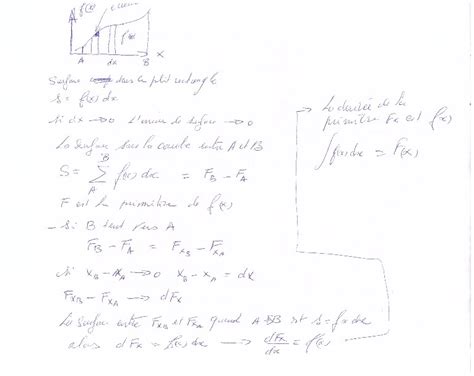 f(x)
erreur
f(x)
A dx B x
Surface dans le petit rectangle
s = f(x) dx
Si dx → 0 L'erreur de surface → 0
La surface sous la courbe entre A et B
S = ∑ᴮ_A f(x) dx = F_B − F_A
F est la primitive de f(x)
– Si B tend vers A
F_B − F_A = F_{x_B} − F_{x_A}
Si x_B − x_A → 0 x_B − x_A = dx
F_{x_B} − F_{x_A} → dF_x
La surface entre F_{x_B} et F_{x_A} quand A → B est s = f(x) dx
alors dF_x = f(x) dx → dF_x/dx = f(x)
→ La dérivée de la
primitive F_x est f(x)
∫ f(x) dx = F(x)